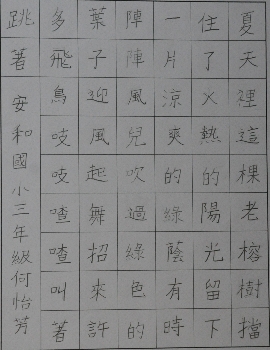 夏天裡這棵老榕樹擋
住了火熱的陽光留下
一片涼爽的綠蔭有時
陣陣風兒吹過綠色的
葉子迎風起舞招來許
多飛鳥吱吱喳喳叫著
跳著
安和國小三年級何怡芳